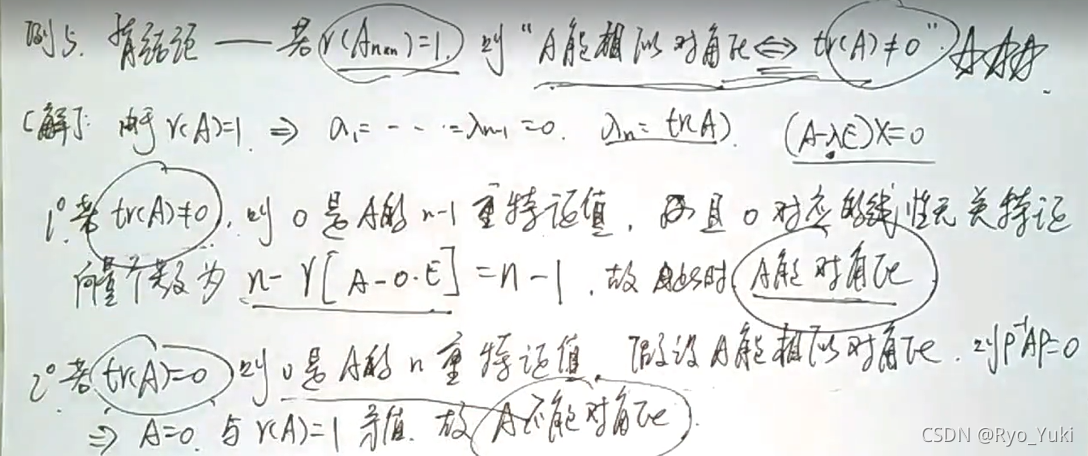 例5. 有结论 —— 若r(Aₙₓₙ)=1, 则"A能相似对角化⇔tr(A)≠0"
[解]: 由于r(A)=1 ⇒ λ₁=---=λₙ₋₁=0. λₙ=tr(A). (A-λE)X=0
1°.若tr(A)≠0, 则0是A的n-1重特征值, 而且0对应的线性无关特征
向量个数为 n-r[A-0·E]=n-1, 故此时A能对角化
2°.若tr(A)=0 则0是A的n重特征值, 假设A能相似对角化, 则P⁻¹AP=0
⇒ A=0. 与r(A)=1矛盾. 故A不能对角化.
CSDN @Ryo_Yuki